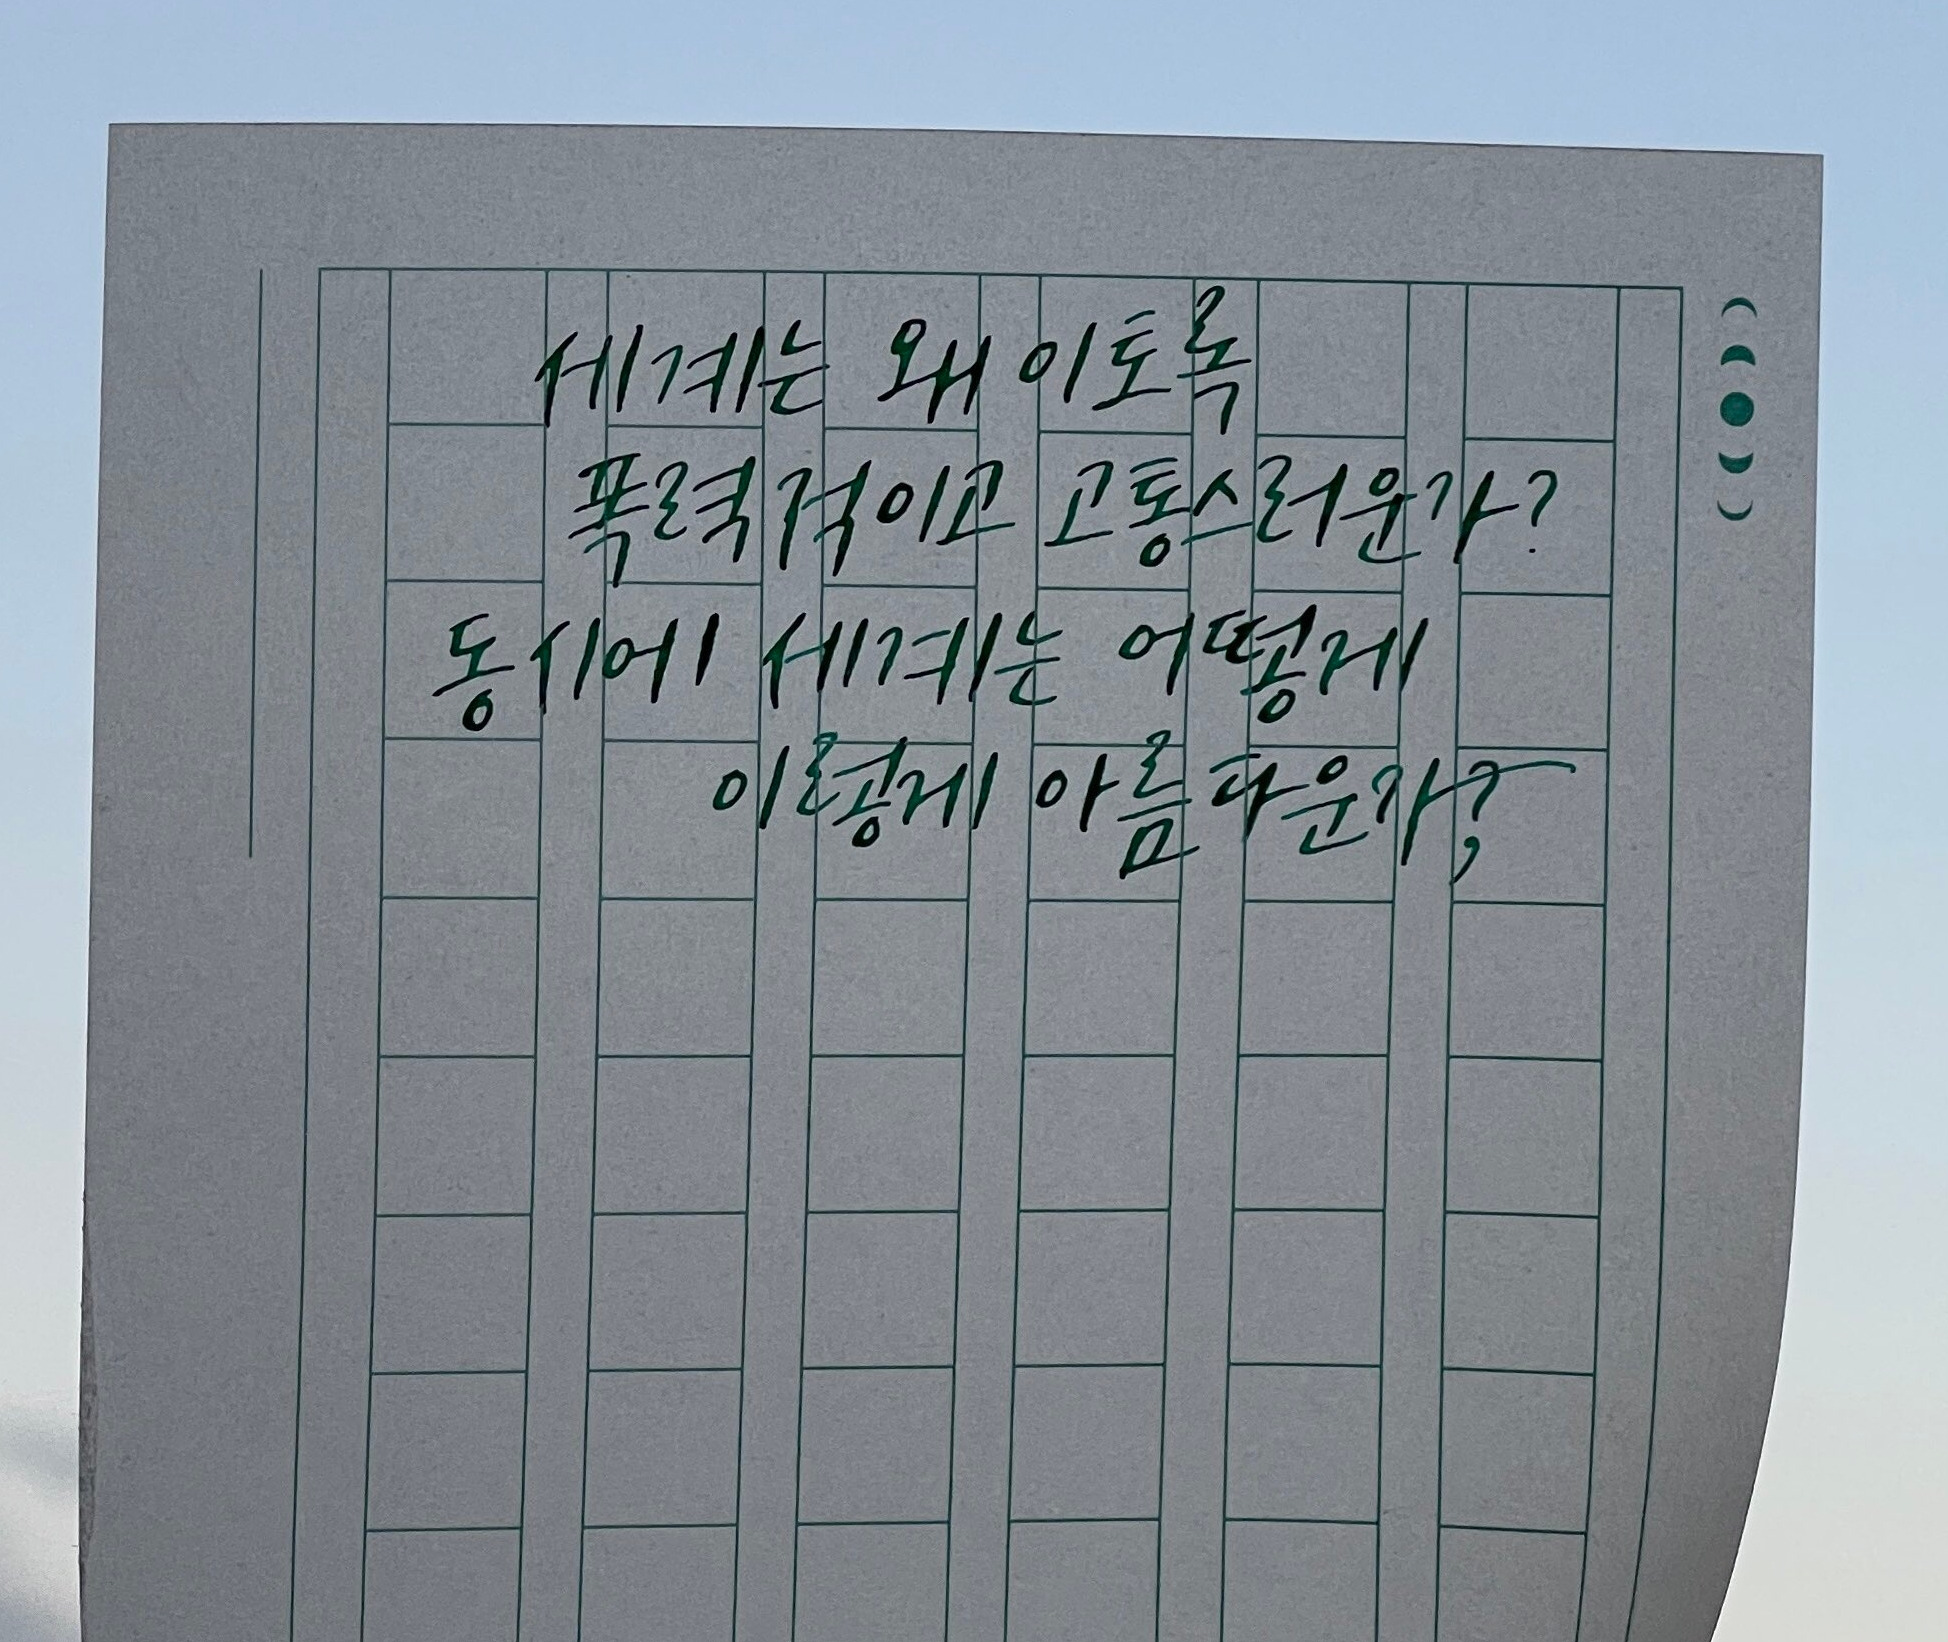 세계는 왜 이토록
폭력적이고 고통스러운가?
동시에 세계는 어떻게
이렇게 아름다운가?